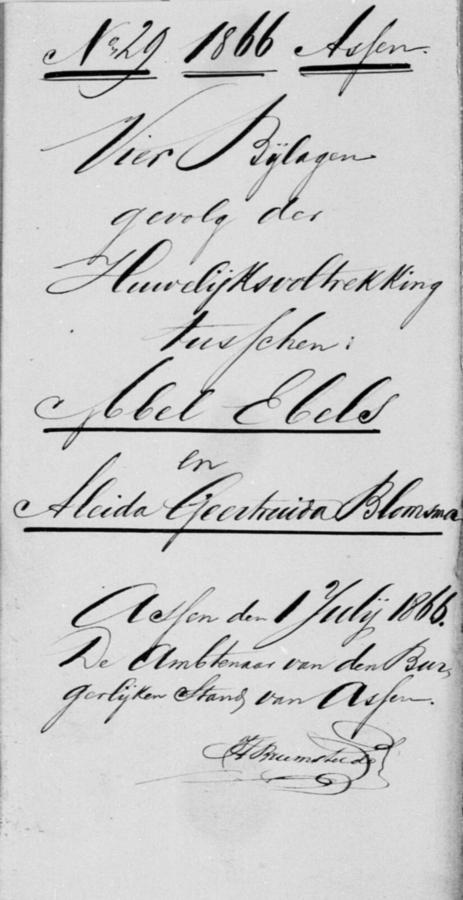 No 29 1866 Assen.
Vier Bijlagen
gevolg der
Huwelijksvoltrekking
tusschen:
Abel Ebels
en
Aleida Geertruida Blomsma
Assen den 1 Julij 1866.
De Ambtenaar van den Bur-
gerlijken Stand van Assen.